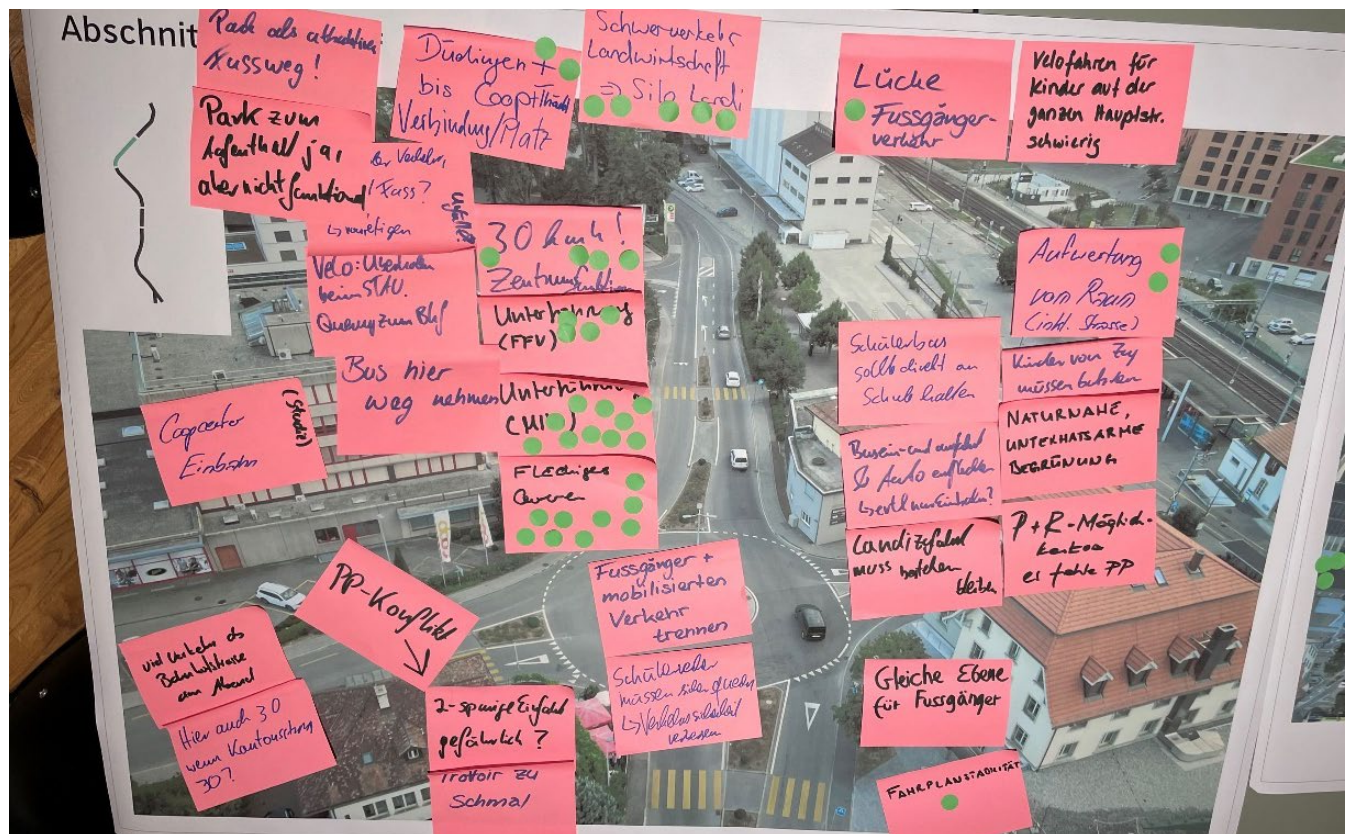 Abschnit
Park als attraktiver
Fussweg!
Park zum
Aufenthalt ja,
aber nicht funktional
Fuss?
Düdingen +
bis Coop+
Verbindung/Platz
Schwerverkehr
Landwirtschaft
=> Silo Landi
Lücke
Fussgänger-
verkehr
Velofahren für
Kinder auf der
ganzen Hauptstr.
schwierig
Velo: Überholen
beim STAU.
Querung zum Bhf
30 km/h!
Zentrumsfunktion
Unterführung
(FFV)
Aufwertung
vom Raum
(inkl. Strasse)
Bus hier
weg nehmen
Unterführung
(MIV)
Schülerbus
sollte direkt an
Schule halten
Kinder von Zug
müssen
Coopcenter
Einbahn
(Studie)
FLächiges
Queren
Busein- und
Auto
NATURNAHE,
UNTERHATSARME
BEGRÜNUNG
Landizufahrt
muss bestehen
bleiben
P+R-Möglich-
keiten
es fehle PP
PP-Konflikt
Fussgänger +
mobilisierten
Verkehr
trennen
viel Verkehr ab
Bahnhofstrasse
am Abend
Hier auch 30
wenn Kantonsstrasse
30?
2-spurige Einfahrt
gefährlich?
Trotoir zu
Schmal
Schülerräder
müssen sicher queren
↳ Verkehrssicherheit
Gleiche Ebene
für Fussgänger
FAHRPLANSTABILITÄT